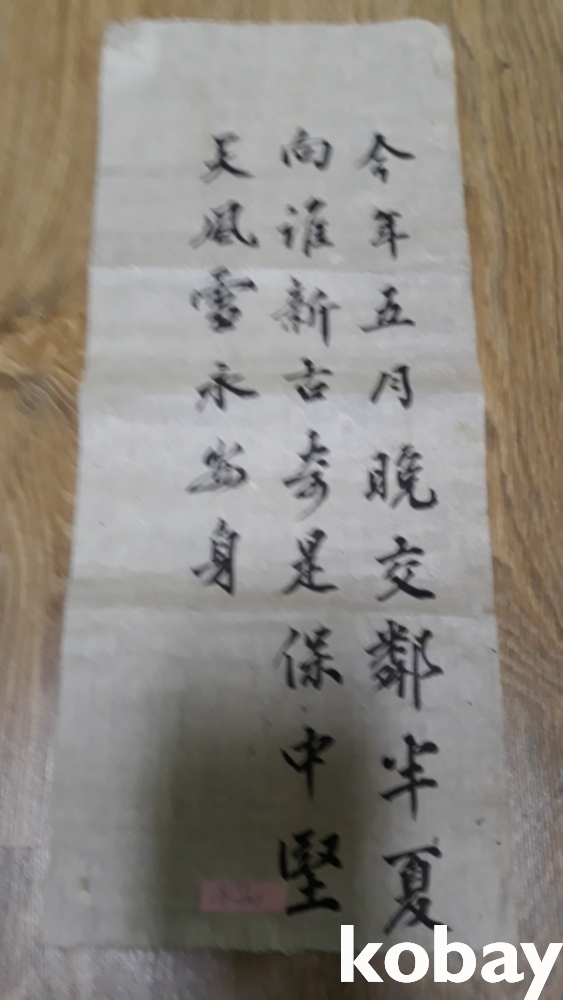 今年五月晚交鄰半夏
向誰新古奇是保中堅
天風雪永出身
kobay